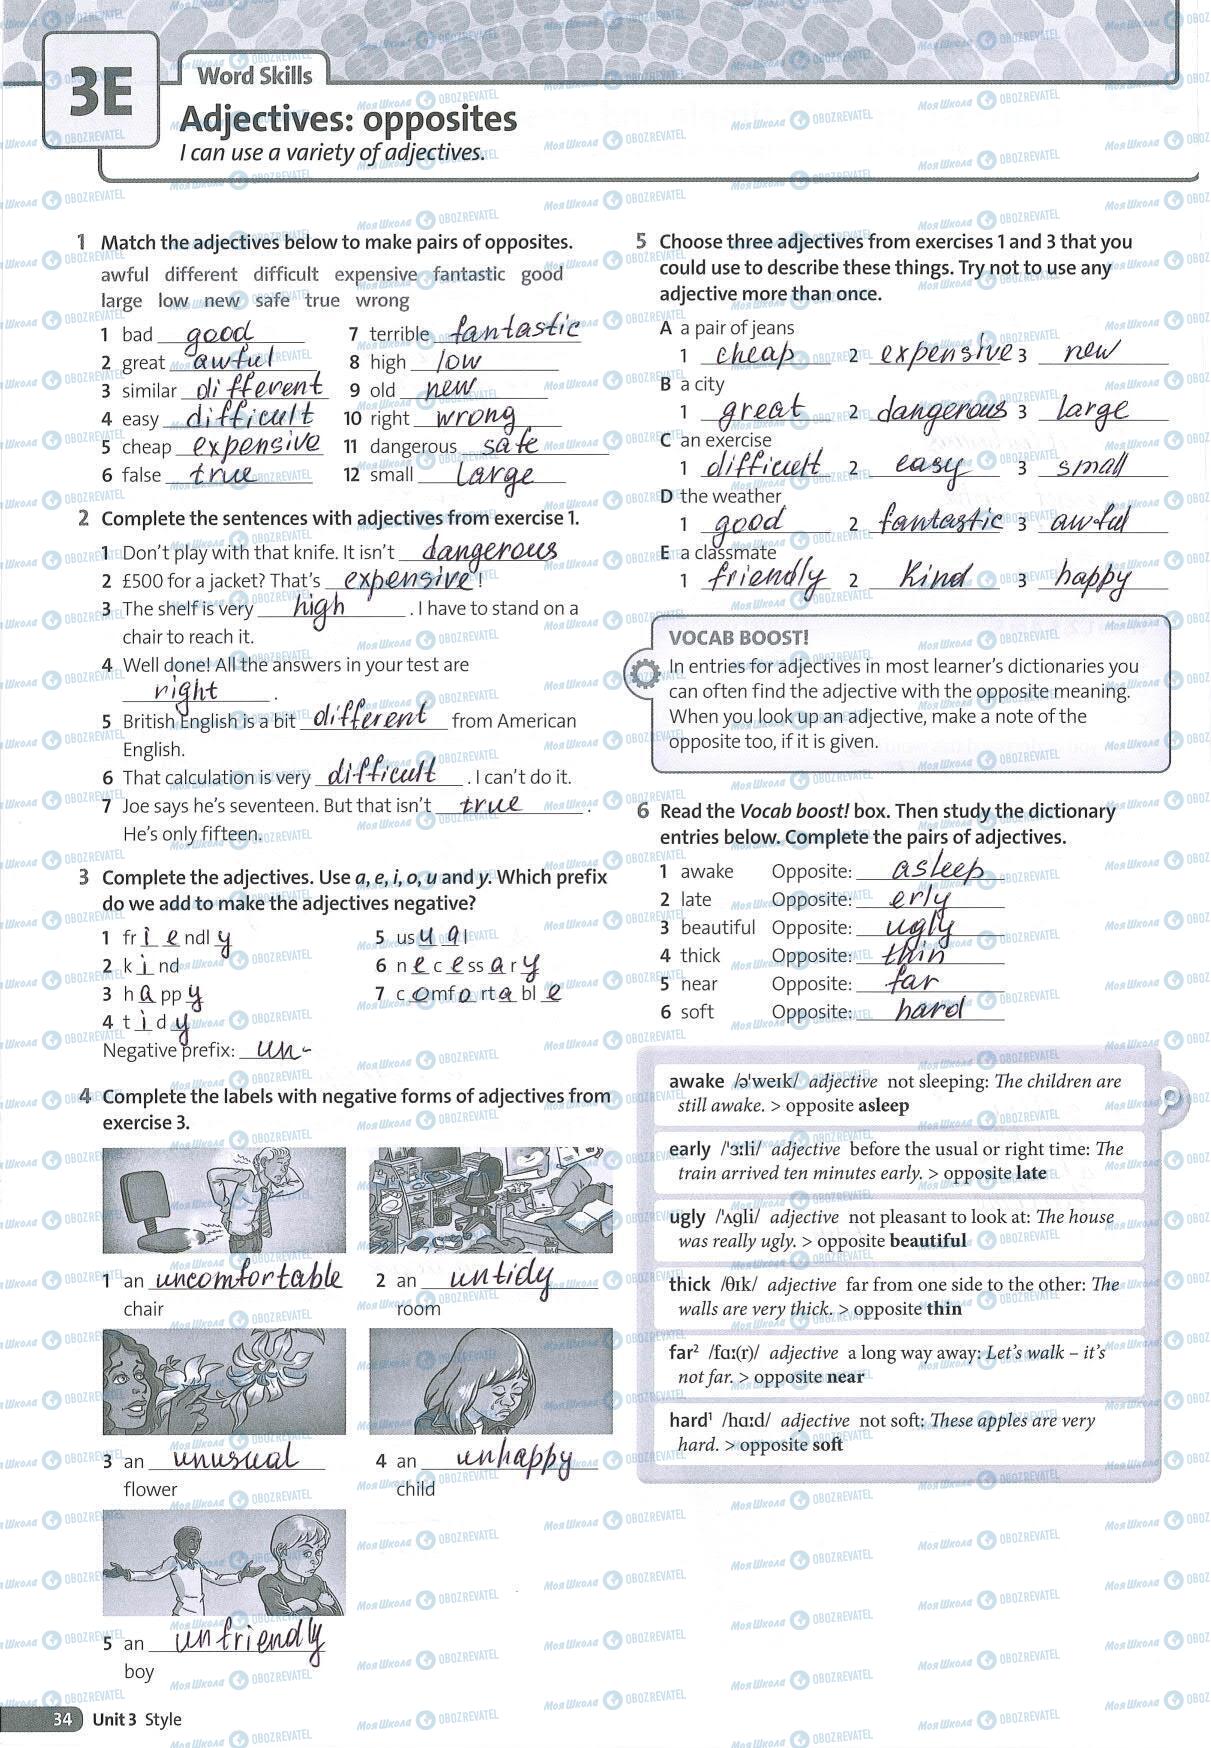 3E
Word Skills
Adjectives: opposites
I can use a variety of adjectives.
1 Match the adjectives below to make pairs of opposites.
awful different difficult expensive fantastic good
large low new safe true wrong
1 bad good
2 great awful
3 similar different
4 easy difficult
5 cheap expensive
6 false true
7 terrible fantastic
8 high low
9 old new
10 right wrong
11 dangerous safe
12 small large
2 Complete the sentences with adjectives from exercise 1.
1 Don't play with that knife. It isn't dangerous
2 £500 for a jacket? That's expensive!
3 The shelf is very high. I have to stand on a
chair to reach it.
4 Well done! All the answers in your test are
right.
5 British English is a bit different from American
English.
6 That calculation is very difficult. I can't do it.
7 Joe says he's seventeen. But that isn't true.
He's only fifteen.
3 Complete the adjectives. Use a, e, i, o, u and y. Which prefix
do we add to make the adjectives negative?
1 friendly
2 kind
3 happy
4 tidy
5 usual
6 necessary
7 comfortable
Negative prefix: un-
4 Complete the labels with negative forms of adjectives from
exercise 3.
1 an uncomfortable
chair
2 an untidy
room
3 an unusual
flower
4 an unhappy
child
5 an unfriendly
boy
34 Unit 3 Style
5 Choose three adjectives from exercises 1 and 3 that you
could use to describe these things. Try not to use any
adjective more than once.
A a pair of jeans
1 cheap 2 expensive 3 new
B a city
1 great 2 dangerous 3 large
C an exercise
1 difficult 2 easy 3 small
D the weather
1 good 2 fantastic 3 awful
E a classmate
1 friendly 2 kind 3 happy
VOCAB BOOST!
In entries for adjectives in most learner's dictionaries you
can often find the adjective with the opposite meaning.
When you look up an adjective, make a note of the
opposite too, if it is given.
6 Read the Vocab boost! box. Then study the dictionary
entries below. Complete the pairs of adjectives.
1 awake Opposite: asleep
2 late Opposite: erly
3 beautiful Opposite: ugly
4 thick Opposite: thin
5 near Opposite: far
6 soft Opposite: hard
awake /ə'weɪk/ adjective not sleeping: The children are
still awake. > opposite asleep
early /'ɜːli/ adjective before the usual or right time: The
train arrived ten minutes early. > opposite late
ugly /'ʌgli/ adjective not pleasant to look at: The house
was really ugly. > opposite beautiful
thick /θɪk/ adjective far from one side to the other: The
walls are very thick. > opposite thin
far² /fɑː(r)/ adjective a long way away: Let's walk – it's
not far. > opposite near
hard¹ /hɑːd/ adjective not soft: These apples are very
hard. > opposite soft
Моя Школа OBOZREVATEL